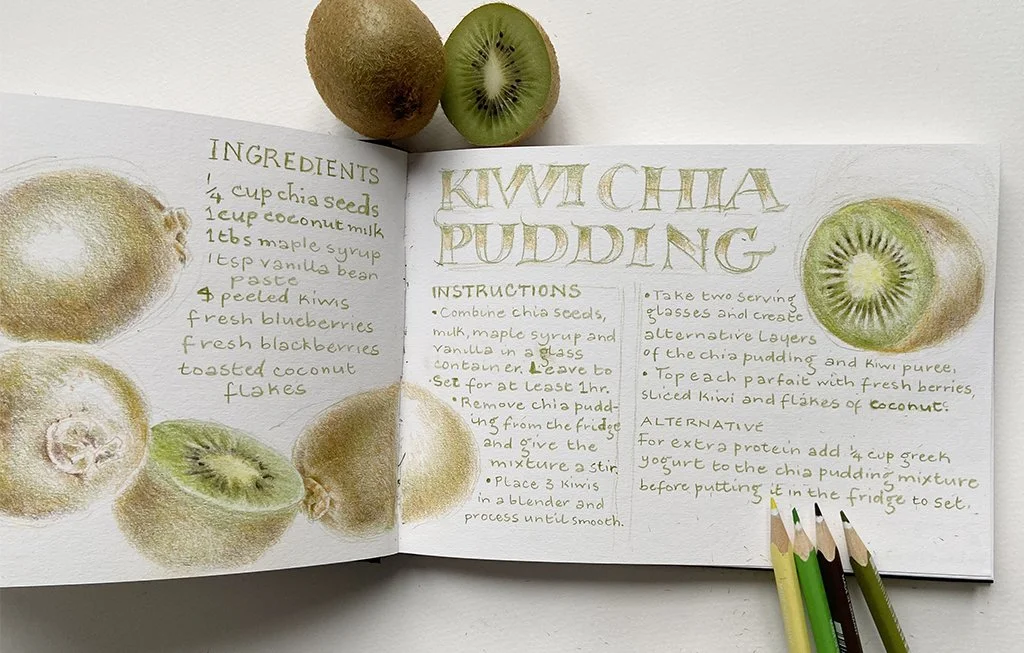 INGREDIENTS
1/4 cup chia seeds
1 cup coconut milk
1 tbs maple syrup
1 tsp vanilla bean
paste
4 peeled kiwis
fresh blueberries
fresh blackberries
toasted coconut
flakes
KIWI CHIA
PUDDING
INSTRUCTIONS
• Combine chia seeds,
milk, maple syrup and
vanilla in a glass
container. Leave to
Set for at least 1hr.
• Remove chia pudd-
ing from the fridge
and give the
mixture a stir.
• Place 3 kiwis
in a blender and
process until smooth.
• Take two serving
glasses and create
alternative layers
of the chia pudding and kiwi puree,
• Top each parfait with fresh berries,
sliced kiwi and flakes of coconut.
ALTERNATIVE
For extra protein add 1/4 cup greek
yogurt to the chia pudding mixture
before putting it in the fridge to set.